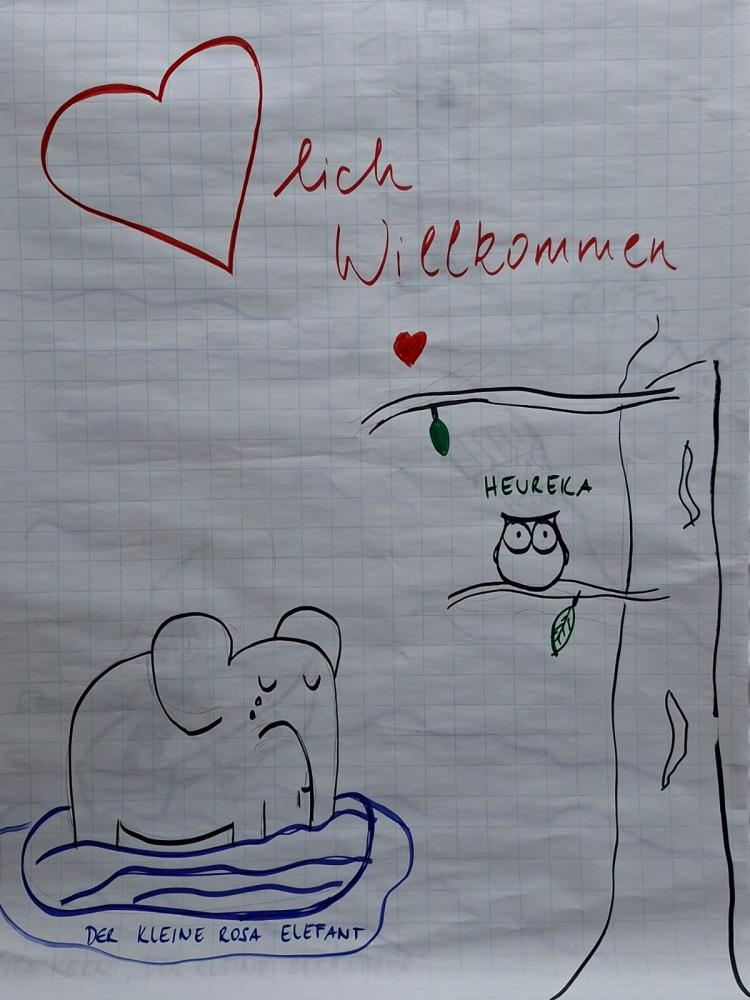 lich
Willkommen
HEUREKA
DER KLEINE ROSA ELEFANT